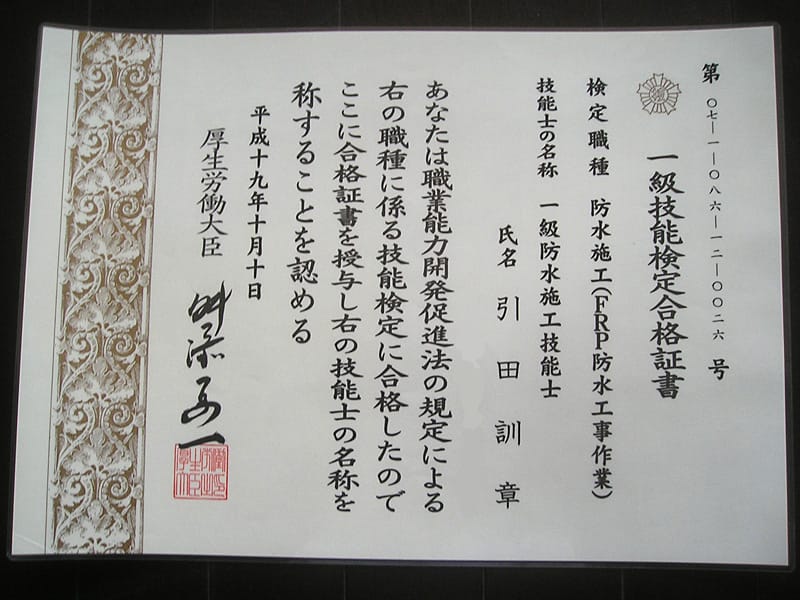 第〇七―一―〇八六―一二―〇〇二六号
一級技能検定合格証書
検定職種 防水施工(FRP防水工事作業)
技能士の名称 一級防水施工技能士
氏名 引田訓章
あなたは職業能力開発促進法の規定による
右の職種に係る技能検定に合格したので
ここに合格証書を授与し右の技能士の名称を
称することを認める
平成十九年十月十日
厚生労働大臣 舛添要一